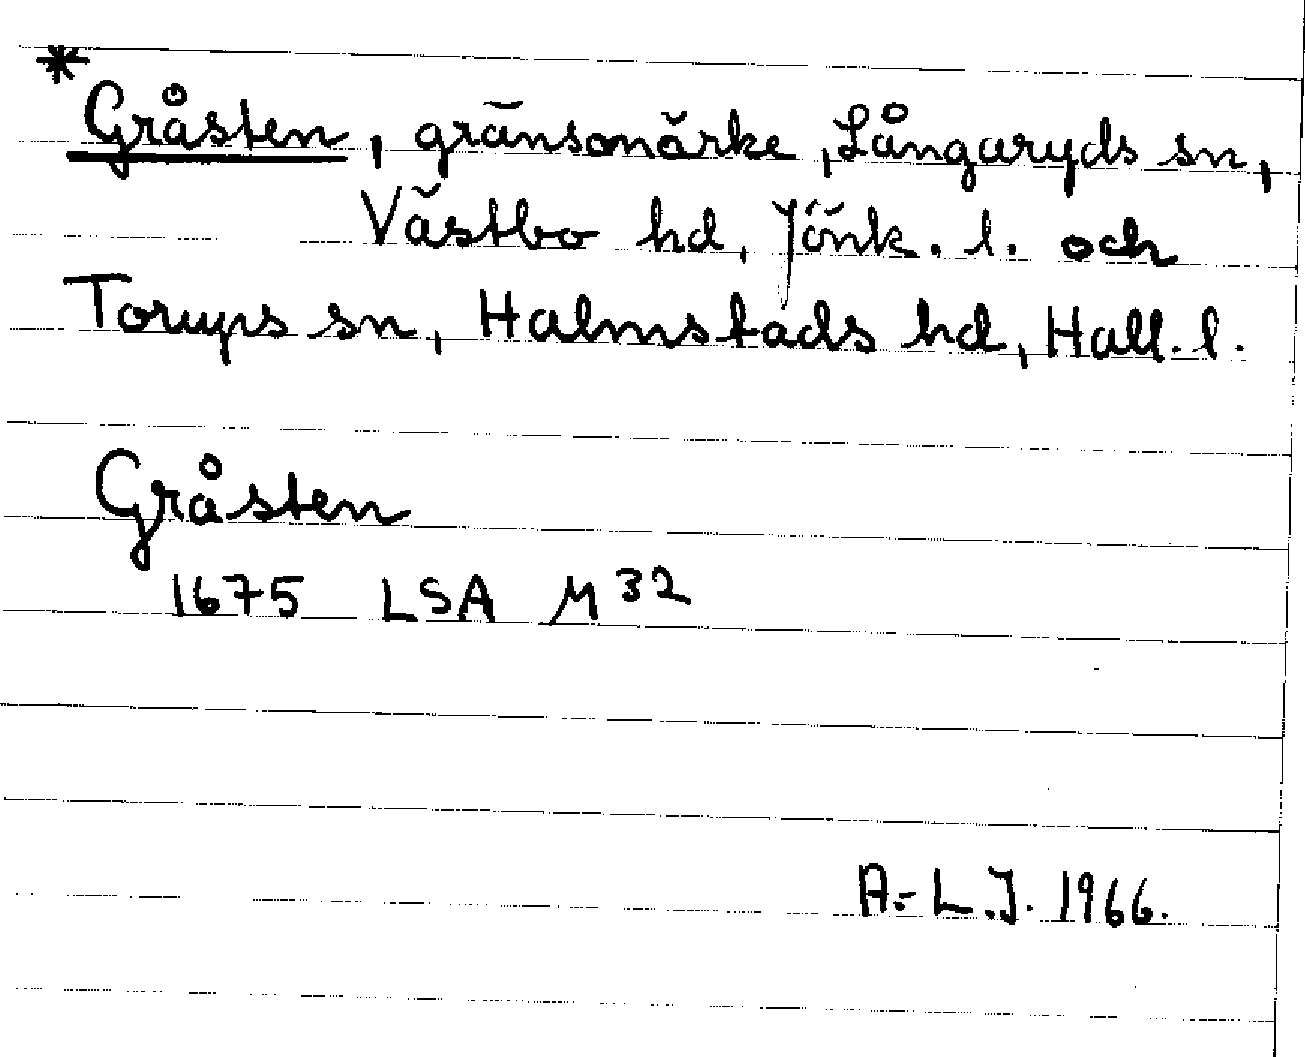 *Gråsten, gränsmärke, Långaryds sn,
Västbo hd, Jönk. l. och
Torups sn, Halmstads hd, Hall. l.
Gråsten
1675 LSA M 32
A.-L.J. 1966.